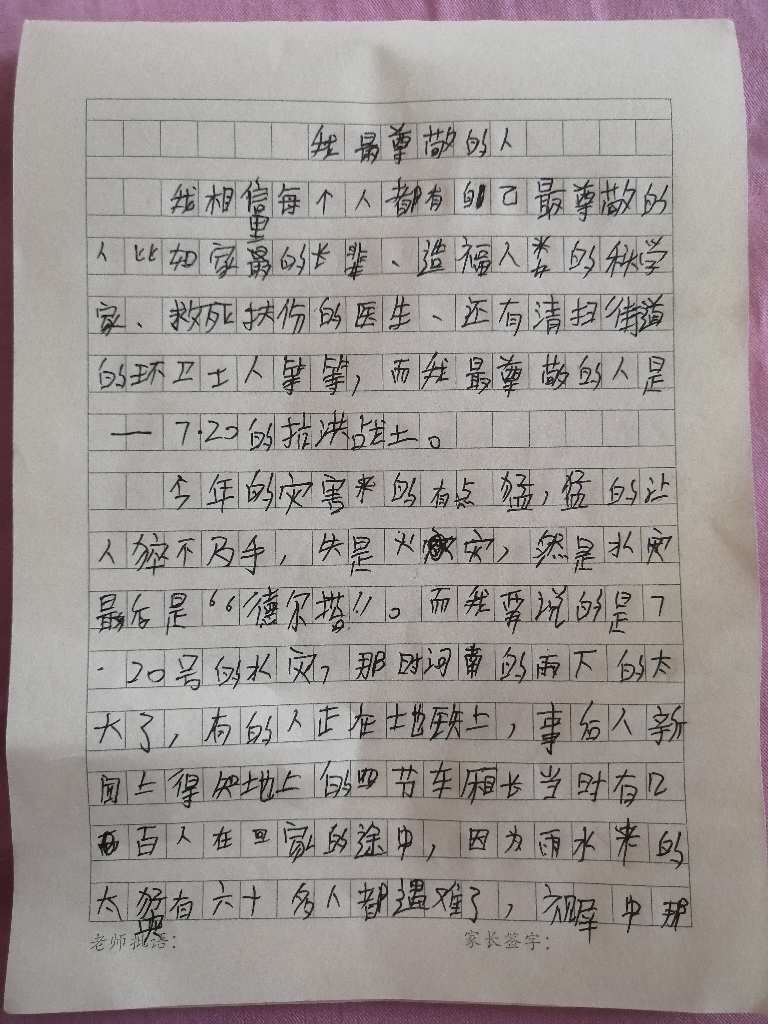 我最尊敬的人
我相信每个人都有自己最尊敬的
人比如家里最的长辈、造福人类的科学
家、救死扶伤的医生、还有清扫街道
的环卫士人等等，而我最尊敬的人是
一7·20的抗洪战士。
今年的灾害来的有点猛，猛的让
人猝不及手，失是火灾，然是水灾
最后是“德尔塔”。而我要说的是7
·20号的水灾，那时河南的雨下的太
大了，有的人正在地铁上，事后人新
闻上得知地上的四节车厢长当时有几
百人在回家的途中，因为雨水来的
太猛有六十多人都遇难了，视屏中那
老师批语：
家长签字：